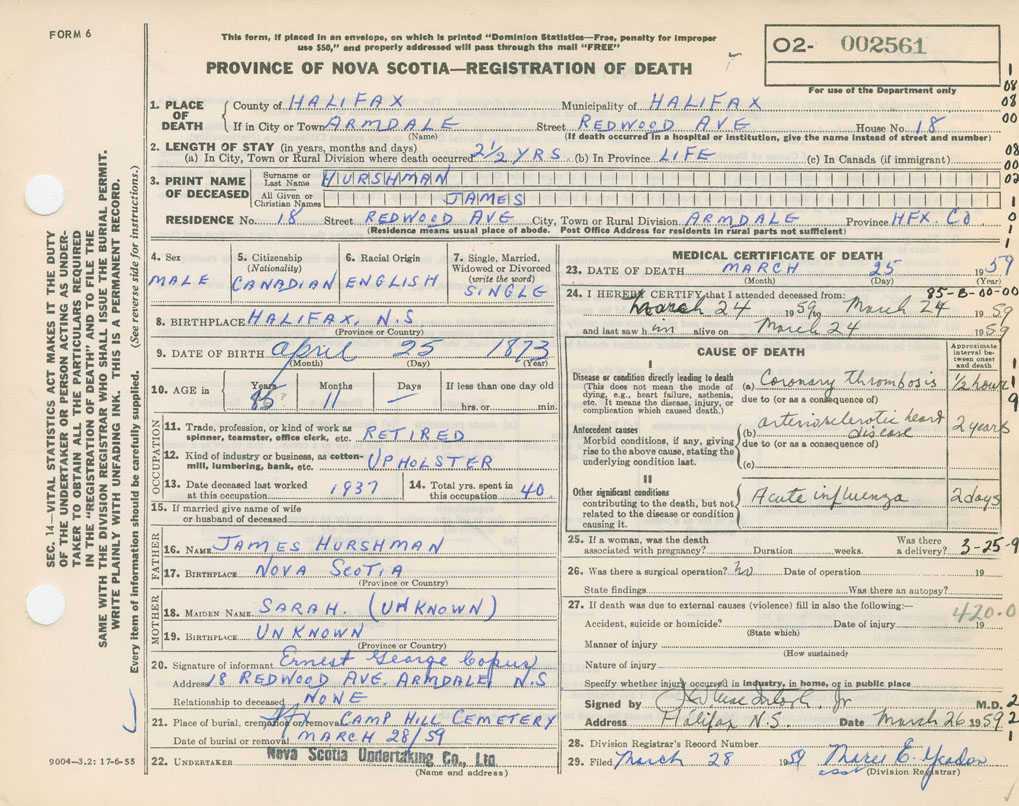 FORM 6
This form, if placed in an envelope, on which is printed "Dominion Statistics—Free, penalty for improper
use $50," and properly addressed will pass through the mail "FREE"
O2- 002561
For use of the Department only
PROVINCE OF NOVA SCOTIA—REGISTRATION OF DEATH
1. PLACE OF DEATH
County of HALIFAX Municipality of HALIFAX
If in City or Town ARMDALE Street REDWOOD AVE House No. 18
(Name) (If death occurred in a hospital or institution, give the name instead of street and number)
2. LENGTH OF STAY (in years, months and days)
(a) In City, Town or Rural Division where death occurred 2½ YRS. (b) In Province LIFE (c) In Canada (if immigrant)
3. PRINT NAME OF DECEASED
Surname or Last Name HURSHMAN
All Given or Christian Names JAMES
RESIDENCE No. 18 Street REDWOOD AVE City, Town or Rural Division ARMDALE Province HFX. CO
(Residence means usual place of abode. Post Office Address for residents in rural parts not sufficient)
4. Sex
MALE
5. Citizenship
(Nationality)
CANADIAN
6. Racial Origin
ENGLISH
7. Single, Married,
Widowed or Divorced
(write the word)
SINGLE
8. BIRTHPLACE HALIFAX, N.S
(Province or Country)
9. DATE OF BIRTH April 25 1873
(Month) (Day) (Year)
10. AGE in
Years Months Days If less than one day old
85 ? 11 — hrs. or min.
OCCUPATION
11. Trade, profession, or kind of work as
spinner, teamster, office clerk, etc. RETIRED
12. Kind of industry or business, as cotton-
mill, lumbering, bank, etc. UPHOLSTER
13. Date deceased last worked
at this occupation 1937
14. Total yrs. spent in
this occupation 40
15. If married give name of wife
or husband of deceased
FATHER
16. NAME JAMES HURSHMAN
17. BIRTHPLACE NOVA SCOTIA
(Province or Country)
MOTHER
18. MAIDEN NAME SARAH. (UNKNOWN)
19. BIRTHPLACE UNKNOWN
(Province or Country)
20. Signature of informant Ernest George Copus
Address 18 REDWOOD AVE. ARMDALE N.S
Relationship to deceased NONE
21. Place of burial, cremation or removal CAMP HILL CEMETERY
Date of burial or removal MARCH 28/59
22. UNDERTAKER Nova Scotia Undertaking Co., Ltd.
(Name and address)
9004—3.2: 17-6-55
MEDICAL CERTIFICATE OF DEATH
23. DATE OF DEATH MARCH 25 1959
(Month) (Day) (Year)
24. I HEREBY CERTIFY that I attended deceased from: 85-B-00-00
March 24 1959 to March 24 1959
and last saw him alive on March 24 1959
CAUSE OF DEATH
Approximate
interval be-
tween onset
and death
I
Disease or condition directly leading to death
(This does not mean the mode of
dying, e.g., heart failure, asthenia,
etc. It means the disease, injury, or
complication which caused death.)
(a) Coronary thrombosis ½ hour
due to (or as a consequence of)
Antecedent causes
Morbid conditions, if any, giving
rise to the above cause, stating the
underlying condition last.
(b) arteriosclerotic heart disease 2 years
due to (or as a consequence of)
(c)
II
Other significant conditions
contributing to the death, but not
related to the disease or condition
causing it.
Acute influenza 2 days
25. If a woman, was the death
associated with pregnancy? Duration weeks. Was there
a delivery? 3-25-9
26. Was there a surgical operation? no Date of operation 19
State findings Was there an autopsy?
27. If death was due to external causes (violence) fill in also the following:— 420.0
Accident, suicide or homicide? Date of injury 19
(State which)
Manner of injury
(How sustained)
Nature of injury
Specify whether injury occurred in industry, in home, or in public place
Signed by Jr M.D.
Address Halifax N.S. Date March 26 1959
28. Division Registrar's Record Number
29. Filed March 28 1959 Marie E. Yeadon
(Division Registrar)
SEC. 14—VITAL STATISTICS ACT MAKES IT THE DUTY
OF THE UNDERTAKER OR PERSON ACTING AS UNDER-
TAKER TO OBTAIN ALL THE PARTICULARS REQUIRED
IN THE "REGISTRATION OF DEATH" AND TO FILE THE
SAME WITH THE DIVISION REGISTRAR WHO SHALL ISSUE THE BURIAL PERMIT.
WRITE PLAINLY WITH UNFADING INK. THIS IS A PERMANENT RECORD.
Every item of information should be carefully supplied. (See reverse side for instructions.)
1
08
08
00
08
00
02
1
0
1
1
9
2
2
1